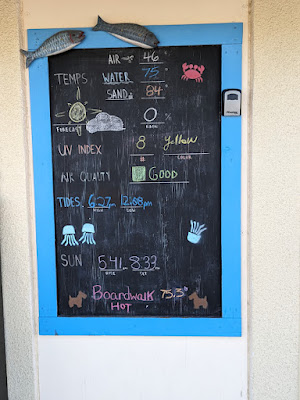 AIR 46
TEMPS WATER 75°
SAND 84
FORECAST 0% RAIN
UV INDEX 8 Yellow
# COLOR
AIR QUALTY GOOD
TIDES 6:27 pm 12:08 pm
HIGH LOW
SUN 5:41 8:33
RISE SET
Boardwalk 75.3°
HOT